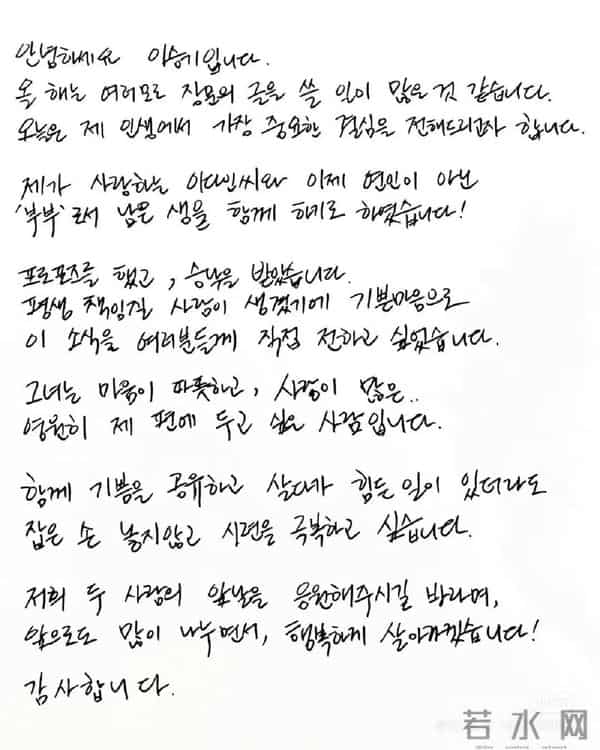 안녕하세요 이승기입니다.
올 해는 여러모로 장문의 글을 쓸 일이 많은 것 같습니다.
오늘은 제 인생에서 가장 중요한 결심을 전해드리고자 합니다.
제가 사랑하는 이다인씨와 이제 연인이 아닌
'부부'로서 남은 생을 함께 하기로 하였습니다!
프로포즈를 했고, 승낙을 받았습니다.
평생 책임질 사람이 생겼기에 기쁜마음으로
이 소식을 여러분들께 직접 전하고 싶었습니다.
그녀는 마음이 따뜻하고, 사랑이 많은..
영원히 제 편에 두고 싶은 사람입니다.
함께 기쁨을 공유하고 살다가 힘든 일이 있더라도
잡은 손 놓지않고 시련을 극복하고 싶습니다.
저희 두 사람의 앞날을 응원해주시길 바라며,
앞으로도 많이 나누면서, 행복하게 살아가겠습니다!
감사합니다.
若水网